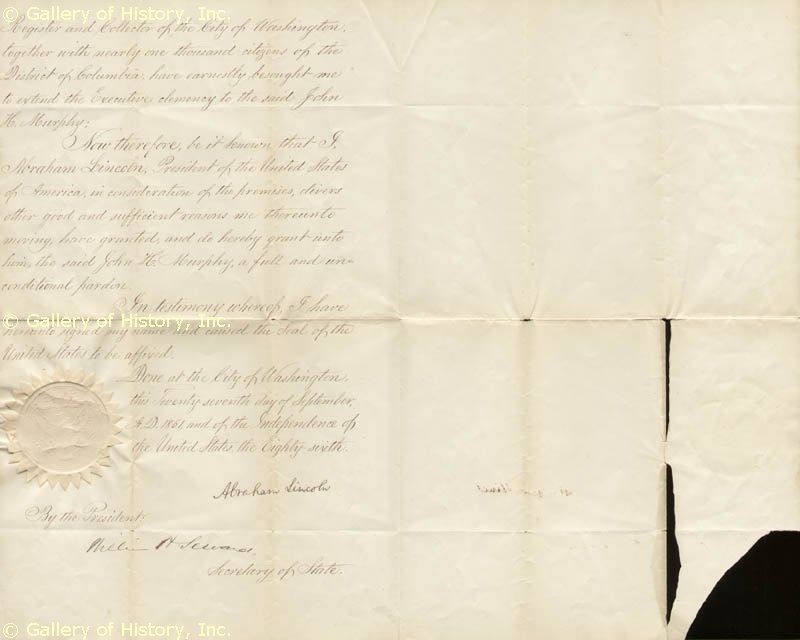 © Gallery of History, Inc.
Register and Collector of the City of Washington,
together with nearly one thousand citizens of the
District of Columbia, have earnestly besought me
to extend the Executive clemency to the said John
H. Murphy;
Now therefore, be it known that I,
Abraham Lincoln, President of the United States
of America, in consideration of the premises, divers
other good and sufficient reasons me thereunto
moving, have granted, and do hereby grant unto
him, the said John H. Murphy, a full and un-
conditional pardon.
In testimony whereof, I have
© Gallery of History, Inc.
hereunto signed my name and caused the Seal of the
United States to be affixed.
Done at the City of Washington,
this Twenty seventh day of September,
A.D. 1861 and of the Independence of
the United States, the Eighty sixth.
Abraham Lincoln
By the President:
William H Seward.
Secretary of State.
© Gallery of History, Inc.